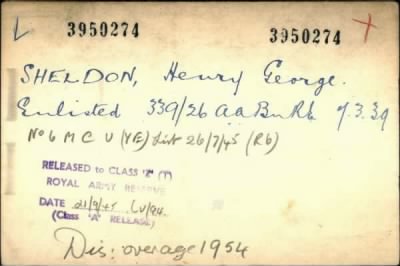 3950274 3950274
SHELDON, Henry George.
Enlisted 339/26 AA Bn RE 7.3.39
No 6 M C U (YE) list 26/7/45 (R6)
RELEASED to CLASS "Z" (T)
ROYAL ARMY RESERVE
DATE 21/9/45
(Class 'A' RELEASE)
Dis: overage 1954